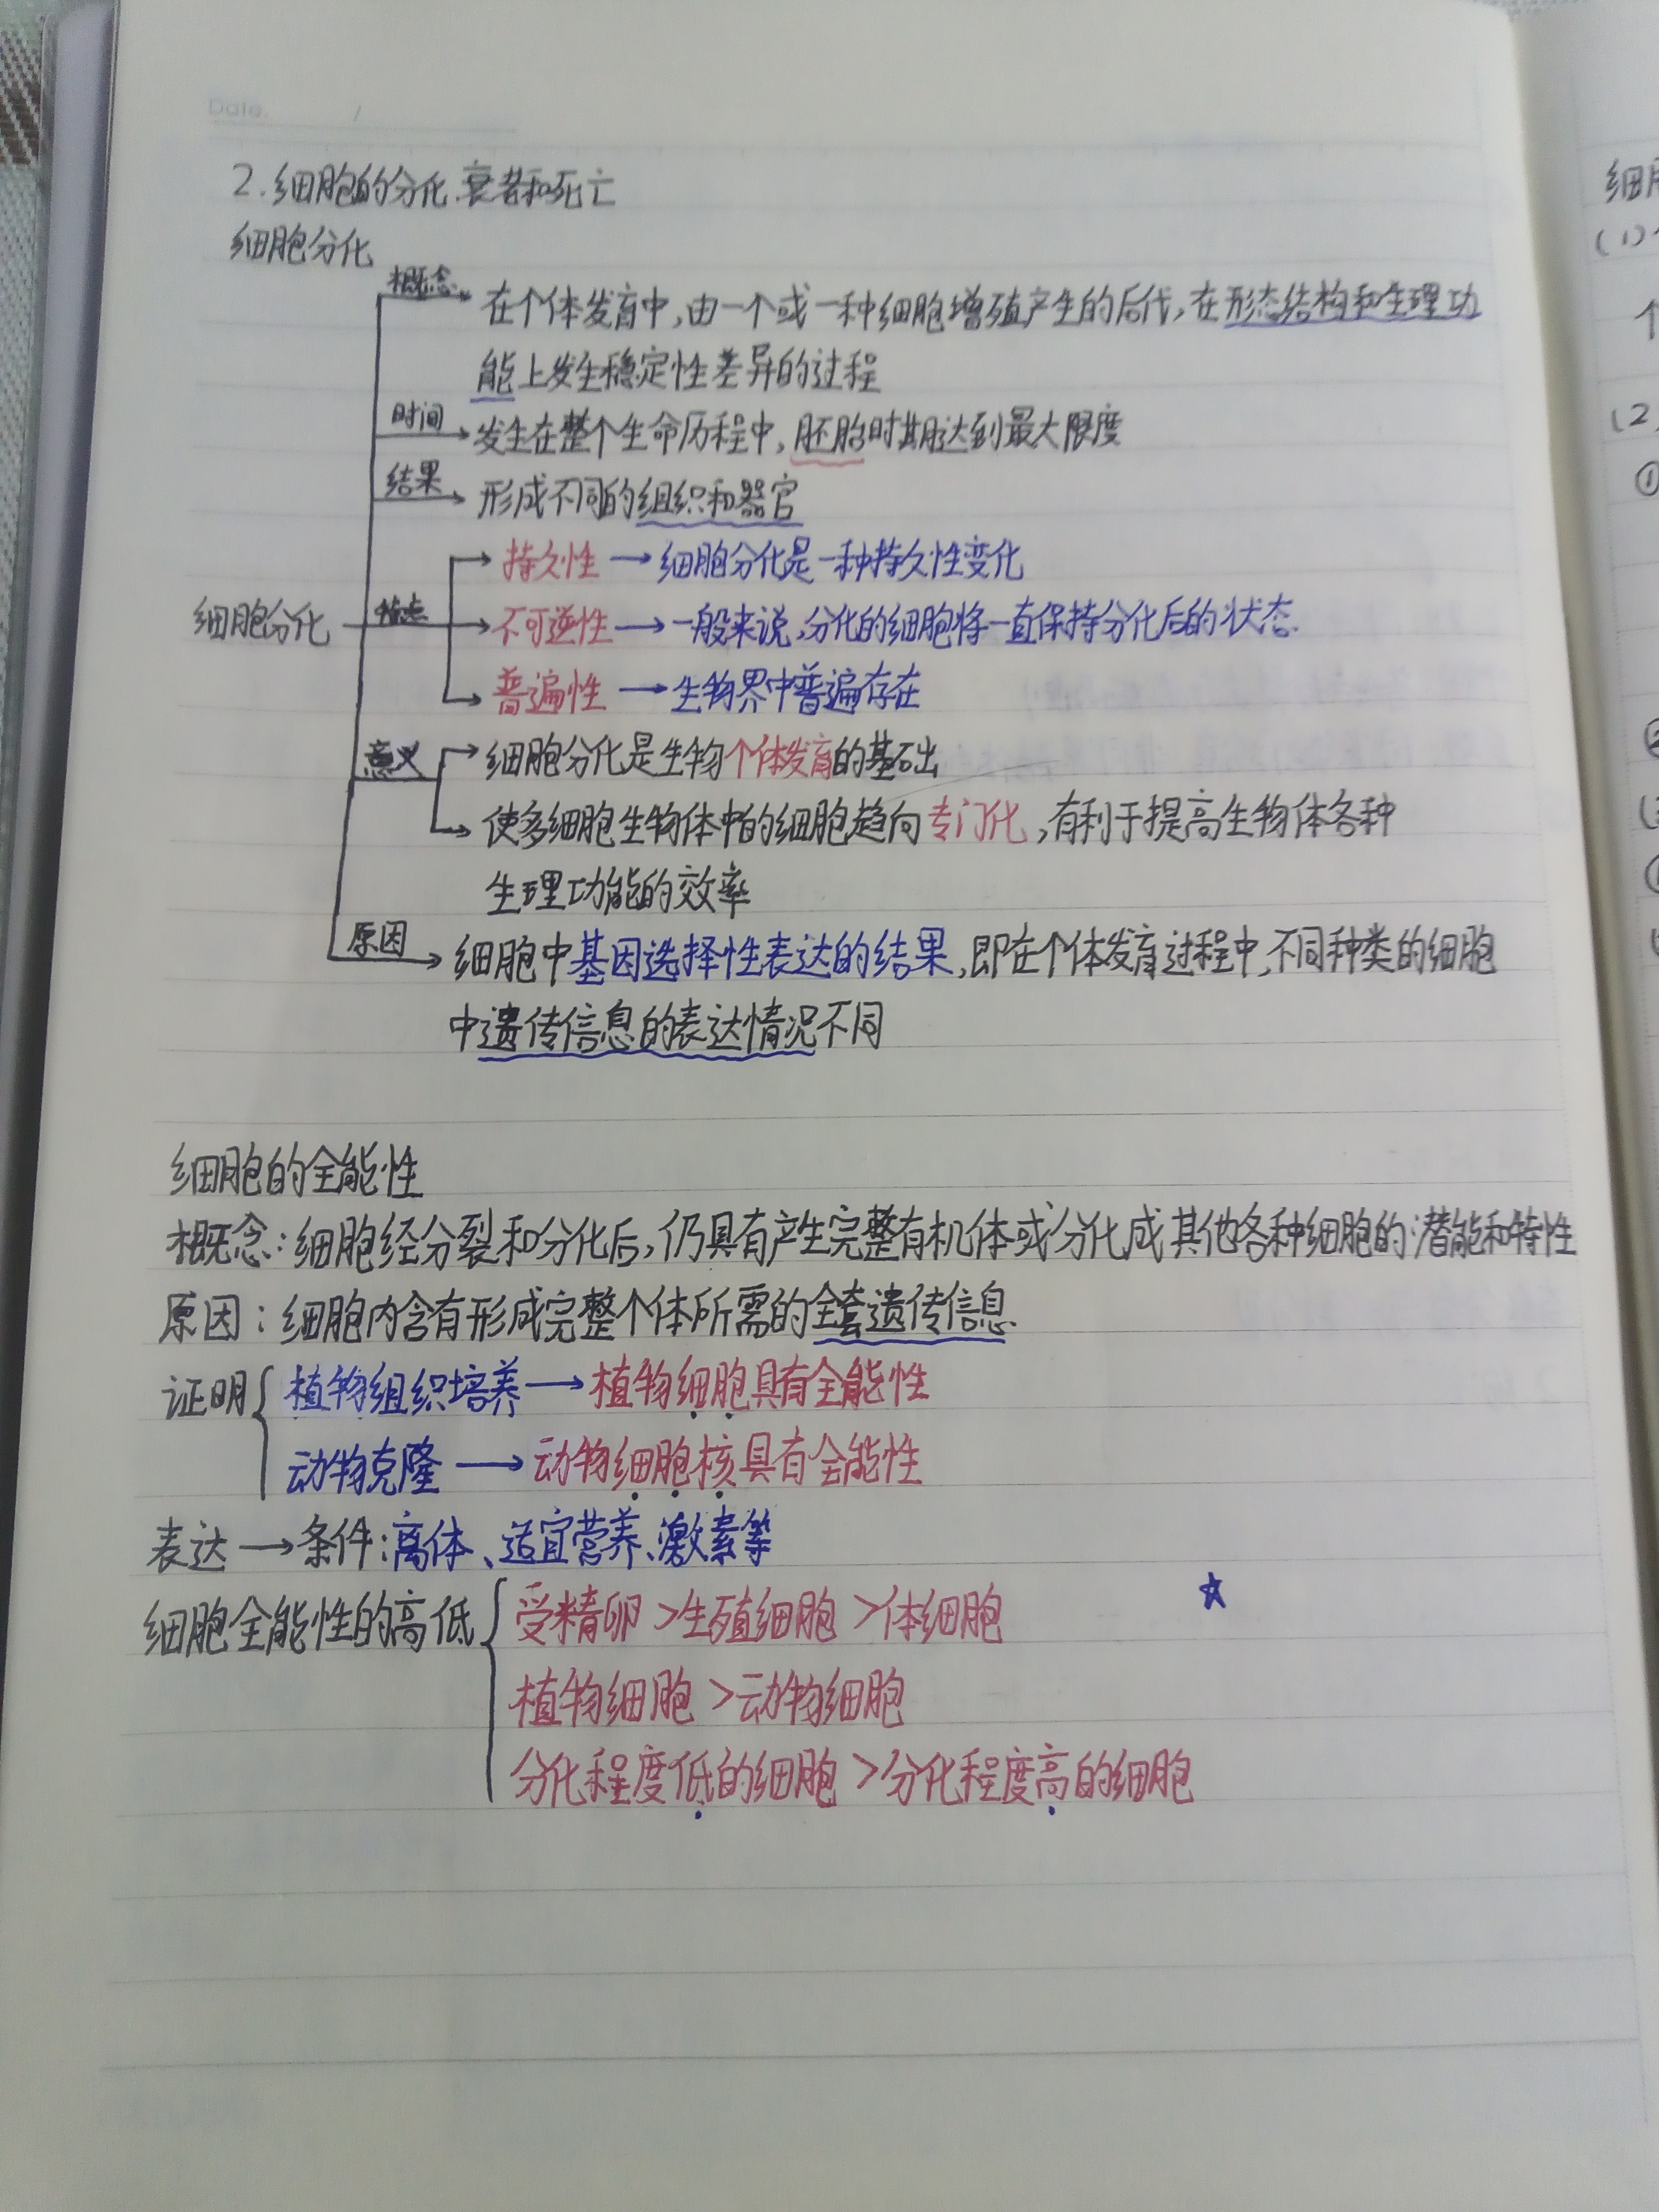 Date. /
2.细胞的分化.衰老和死亡
细胞分化
概念 在个体发育中,由一个或一种细胞增殖产生的后代,在形态结构和生理功
能上发生稳定性差异的过程
时间 发生在整个生命历程中,胚胎时期达到最大限度
结果 形成不同的组织和器官
持久性→细胞分化是一种持久性变化
细胞分化 特点 不可逆性→一般来说,分化的细胞将一直保持分化后的状态.
普遍性→生物界中普遍存在
意义 细胞分化是生物个体发育的基础
使多细胞生物体中的细胞趋向专门化,有利于提高生物体各种
生理功能的效率
原因 细胞中基因选择性表达的结果,即在个体发育过程中,不同种类的细胞
中遗传信息的表达情况不同
细胞的全能性
概念:细胞经分裂和分化后,仍具有产生完整有机体或分化成其他各种细胞的潜能和特性
原因:细胞内含有形成完整个体所需的全套遗传信息.
证明 植物组织培养→植物细胞具有全能性
动物克隆→动物细胞核具有全能性
表达→条件:离体、适宜营养、激素等
细胞全能性的高低 受精卵>生殖细胞>体细胞 ☆
植物细胞>动物细胞
分化程度低的细胞>分化程度高的细胞
细
(1)
个
(2)
①